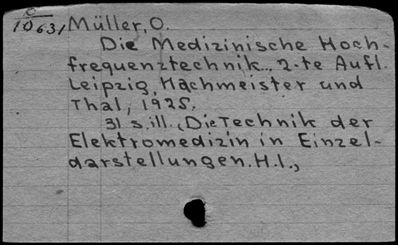 C
10631 Müller, O.
Die Medizinische Hoch-
frequenztechnik.. 2-te Aufl.
Leipzig, Hachmeister und
Thal, 1925.
31 s. ill. (Die Technik der
Elektromedizin in Einzel-
darstellungen. H.I.,